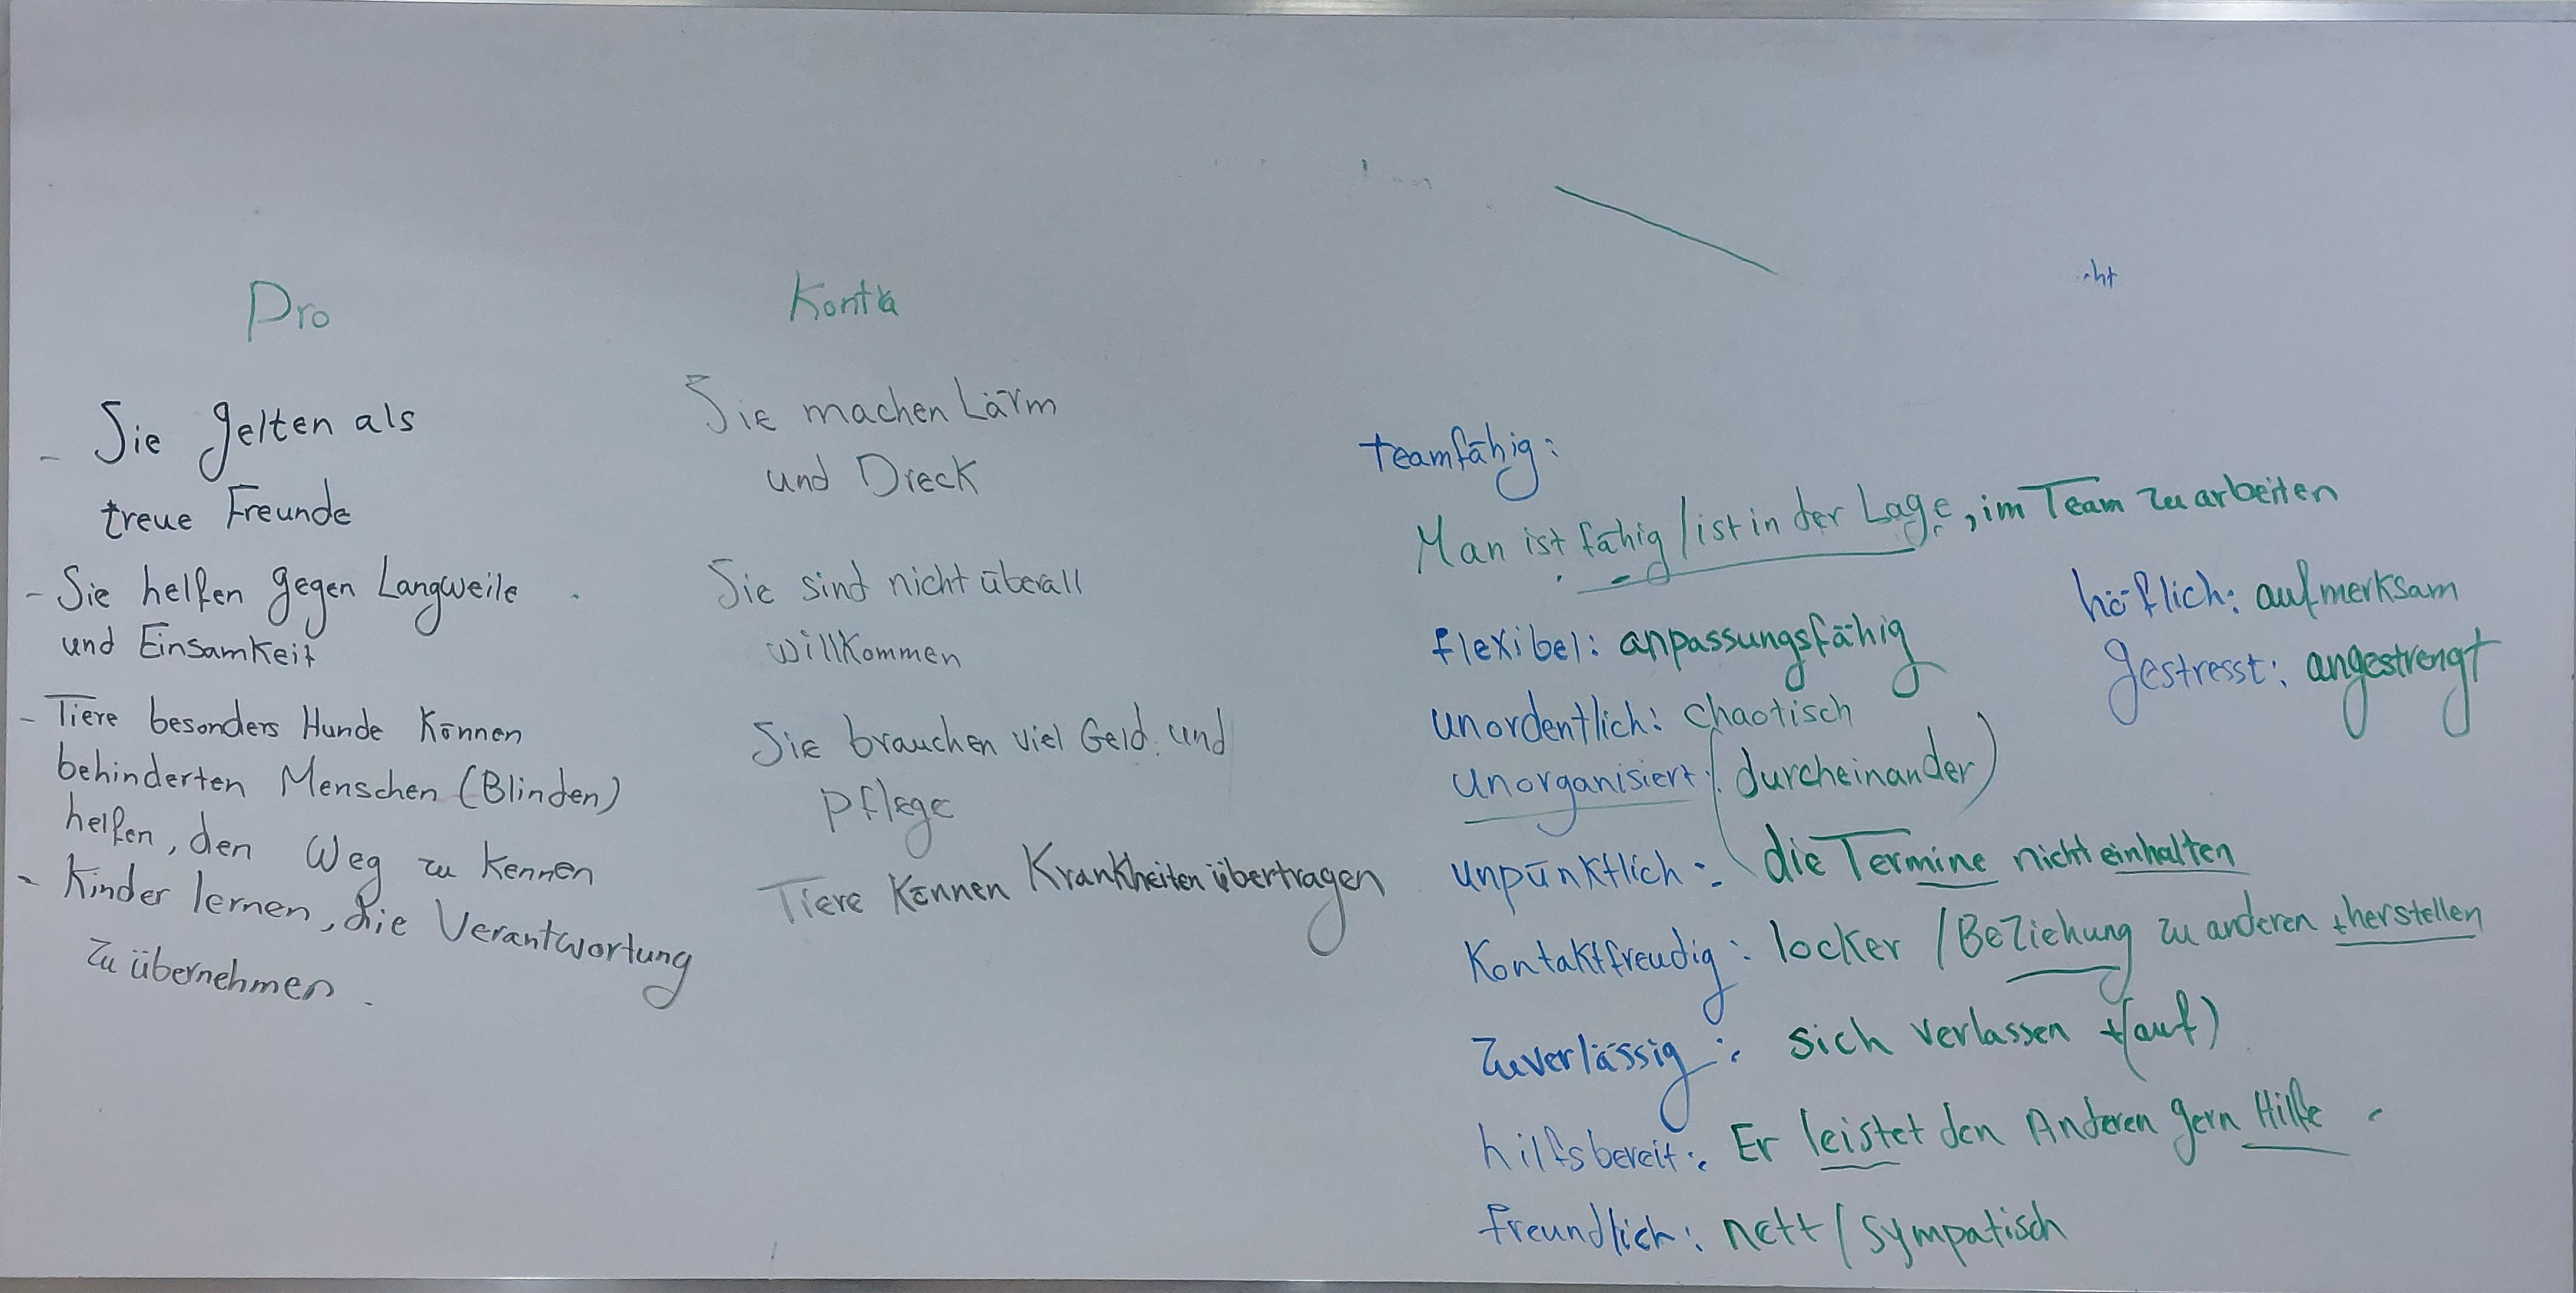 Pro
- Sie gelten als
treue Freunde
- Sie helfen gegen Langweile
und Einsamkeit
- Tiere besonders Hunde können
behinderten Menschen (Blinden)
helfen, den Weg zu kennen
- Kinder lernen, die Verantwortung
zu übernehmen.
Kontra
Sie machen Lärm
und Dreck
Sie sind nicht überall
willkommen
Sie brauchen viel Geld und
Pflege
Tiere können Krankheiten übertragen
teamfähig:
Man ist fähig / ist in der Lage, im Team zu arbeiten
flexibel: anpassungsfähig
unordentlich: chaotisch
unorganisiert: (durcheinander)
unpünktlich: die Termine nicht einhalten
Kontaktfreudig: locker / Beziehung zu anderen herstellen
Zuverlässig: sich verlassen +(auf)
hilfsbereit: Er leistet den Anderen gern Hilfe.
freundlich: nett / sympatisch
höflich: aufmerksam
gestresst: angestrengt